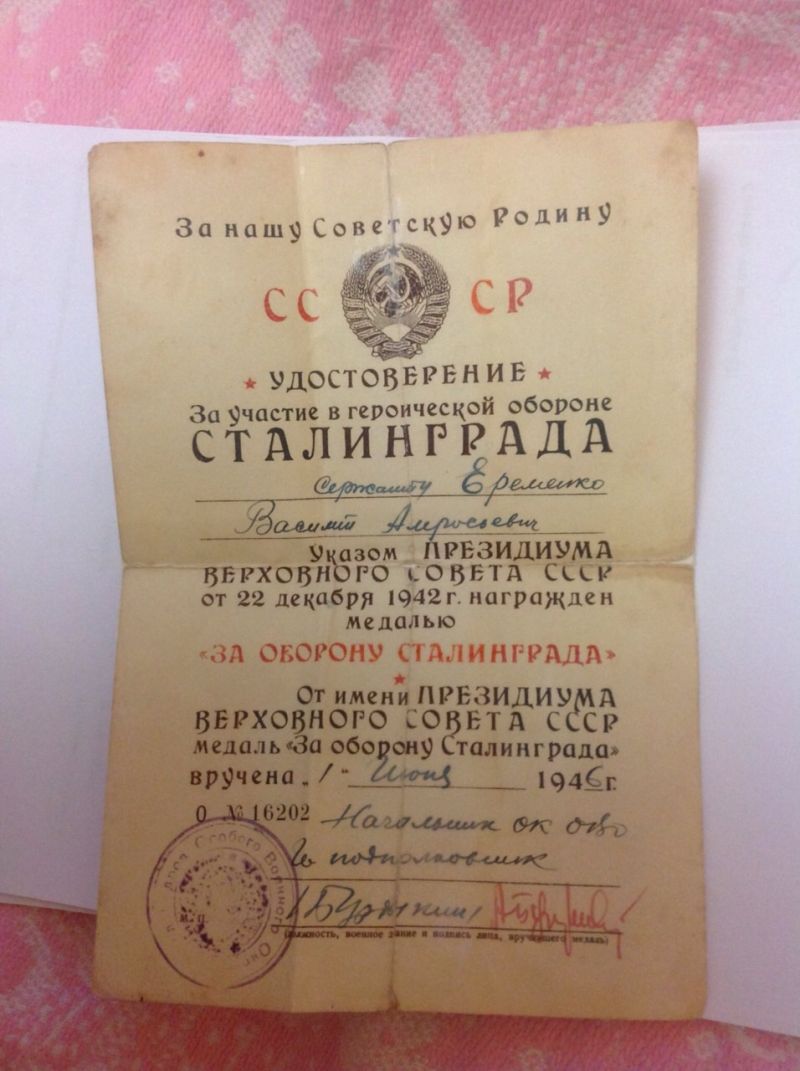 За нашу Советскую Родину
СС СР
УДОСТОВЕРЕНИЕ
За участие в героической обороне
СТАЛИНГРАДА
Сержанту Еременко
Василий Амросьевич
Указом ПРЕЗИДИУМА
ВЕРХОВНОГО СОВЕТА СССР
от 22 декабря 1942 г. награжден
медалью
«ЗА ОБОРОНУ СТАЛИНГРАДА»
От имени ПРЕЗИДИУМА
ВЕРХОВНОГО СОВЕТА СССР
медаль «За оборону Сталинграда»
вручена „1“ Июня 1946 г.
О № 16202 Начальник ОК ОВО
Гв подполковник
Особого Военного
М. П.
(должность, военное звание и подпись лица, вручившего медаль)